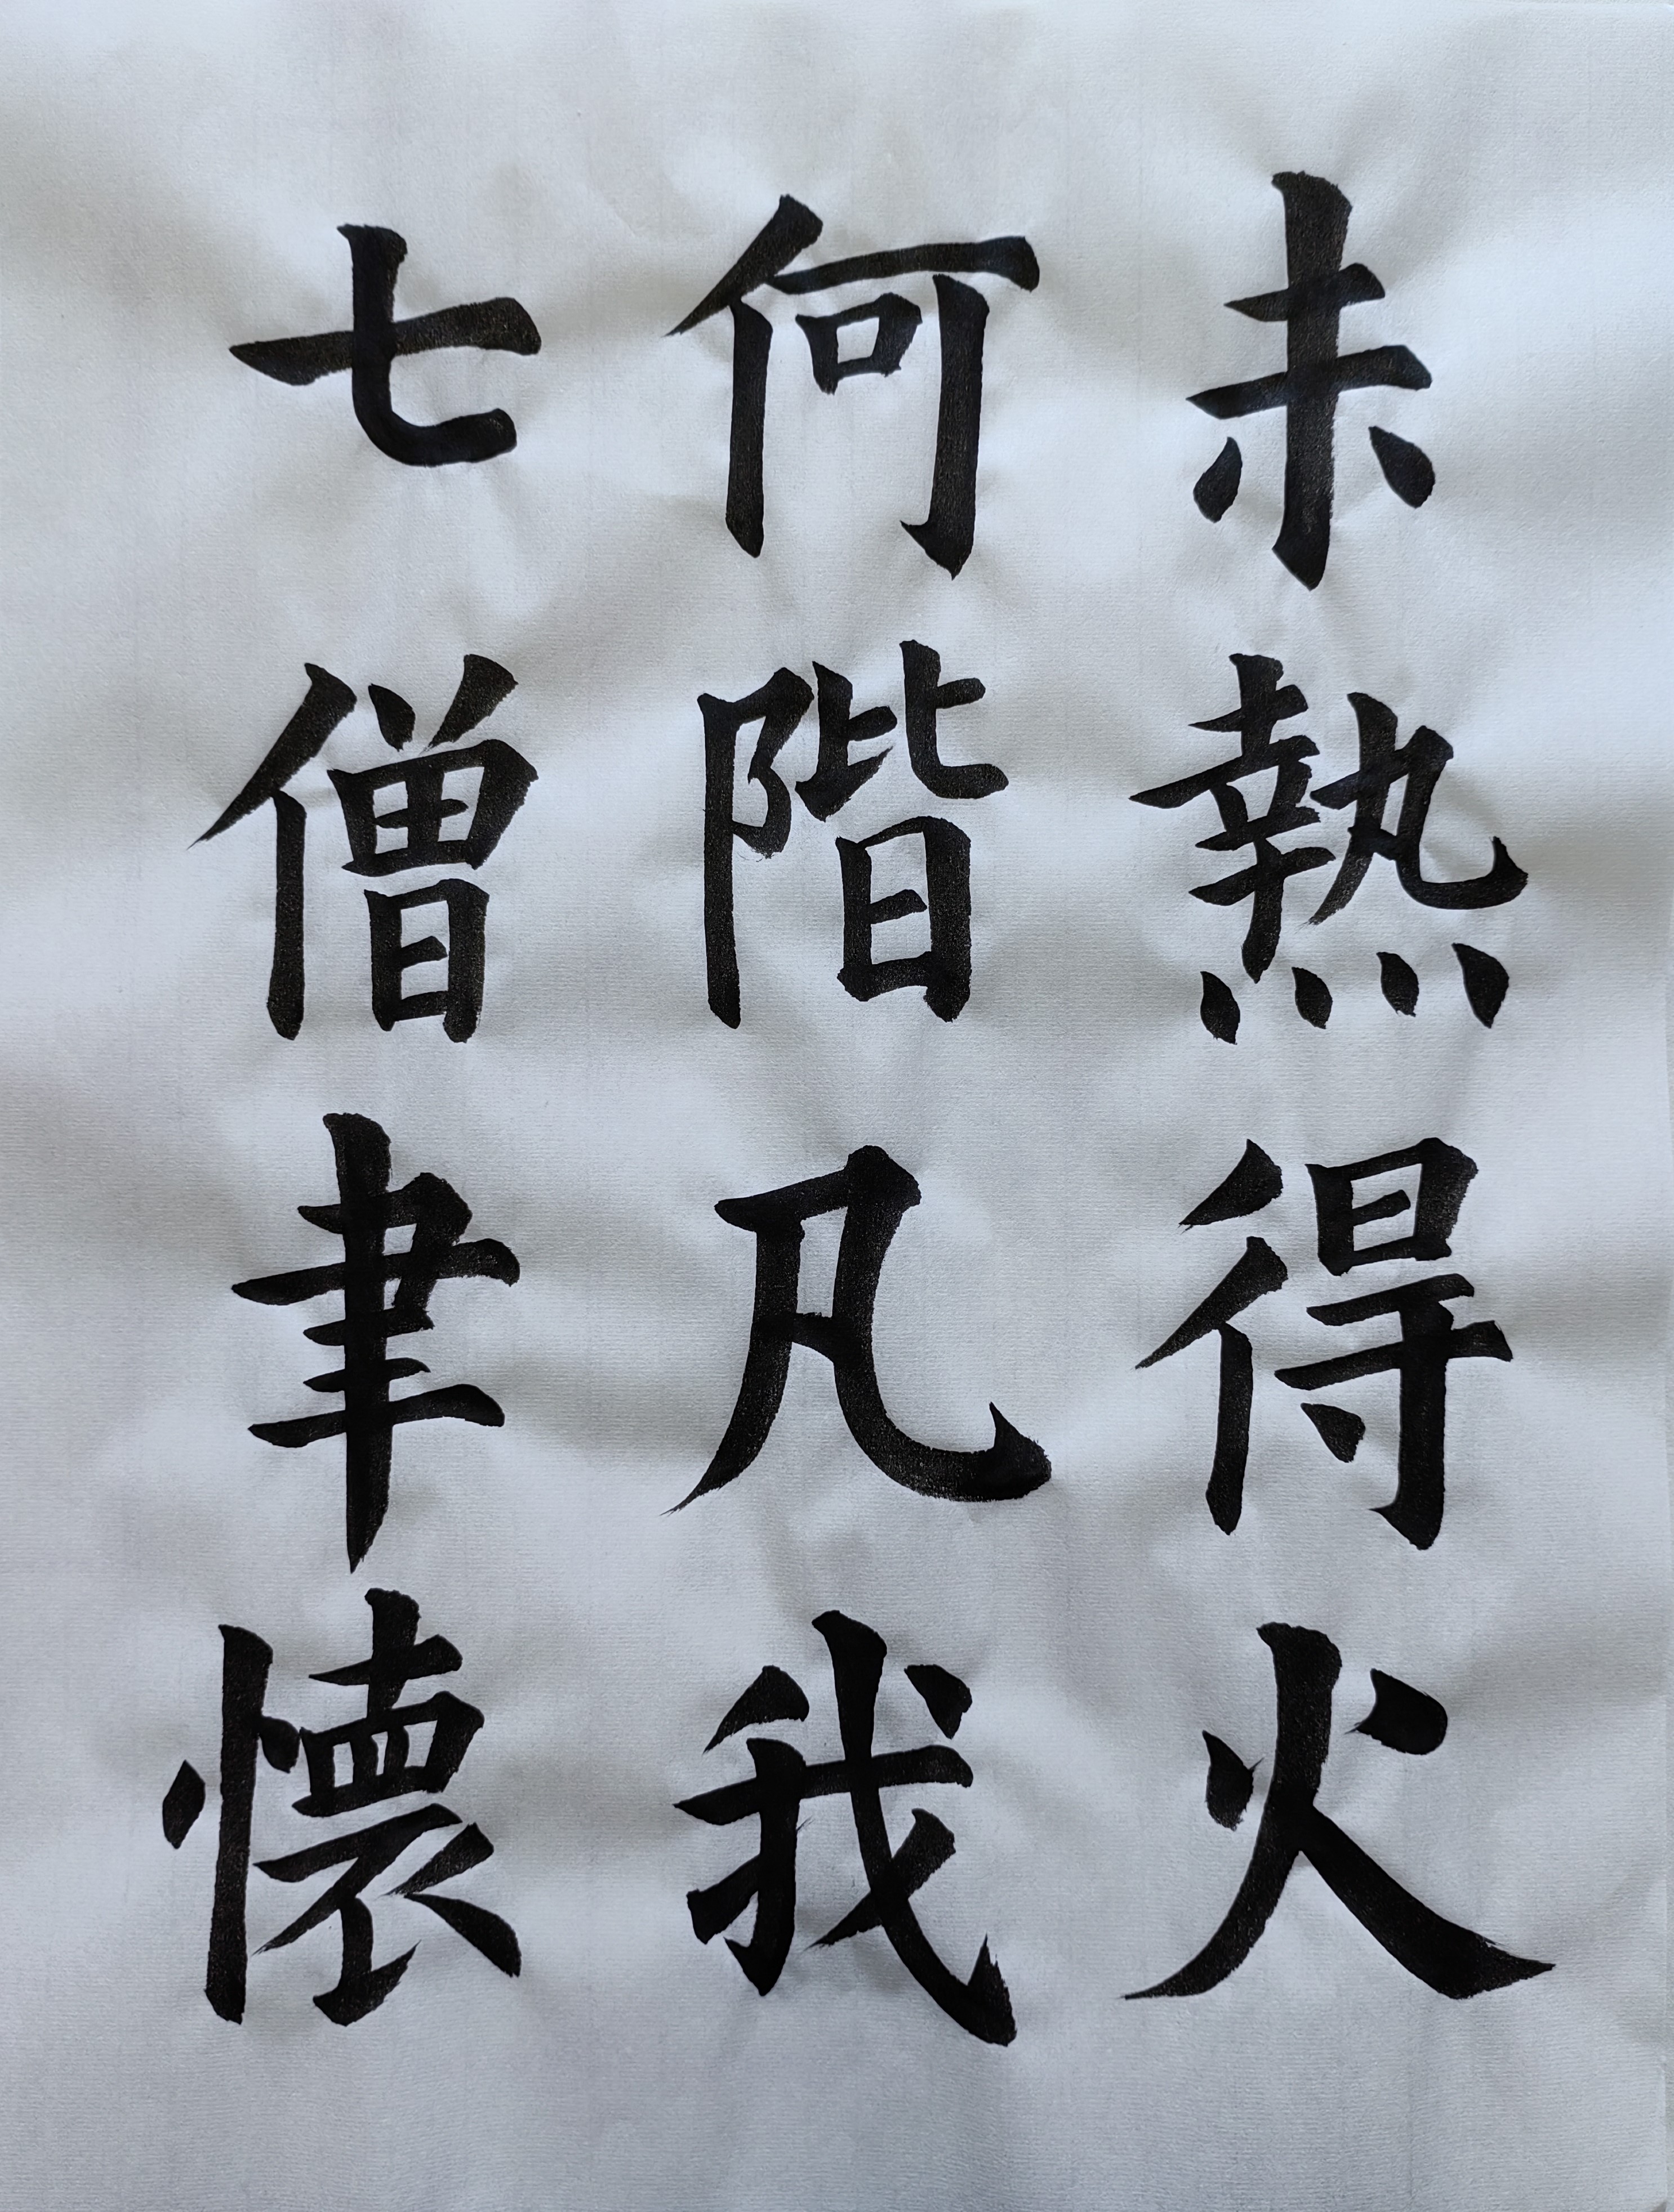 未熱得火
何階凡我
七僧聿懷